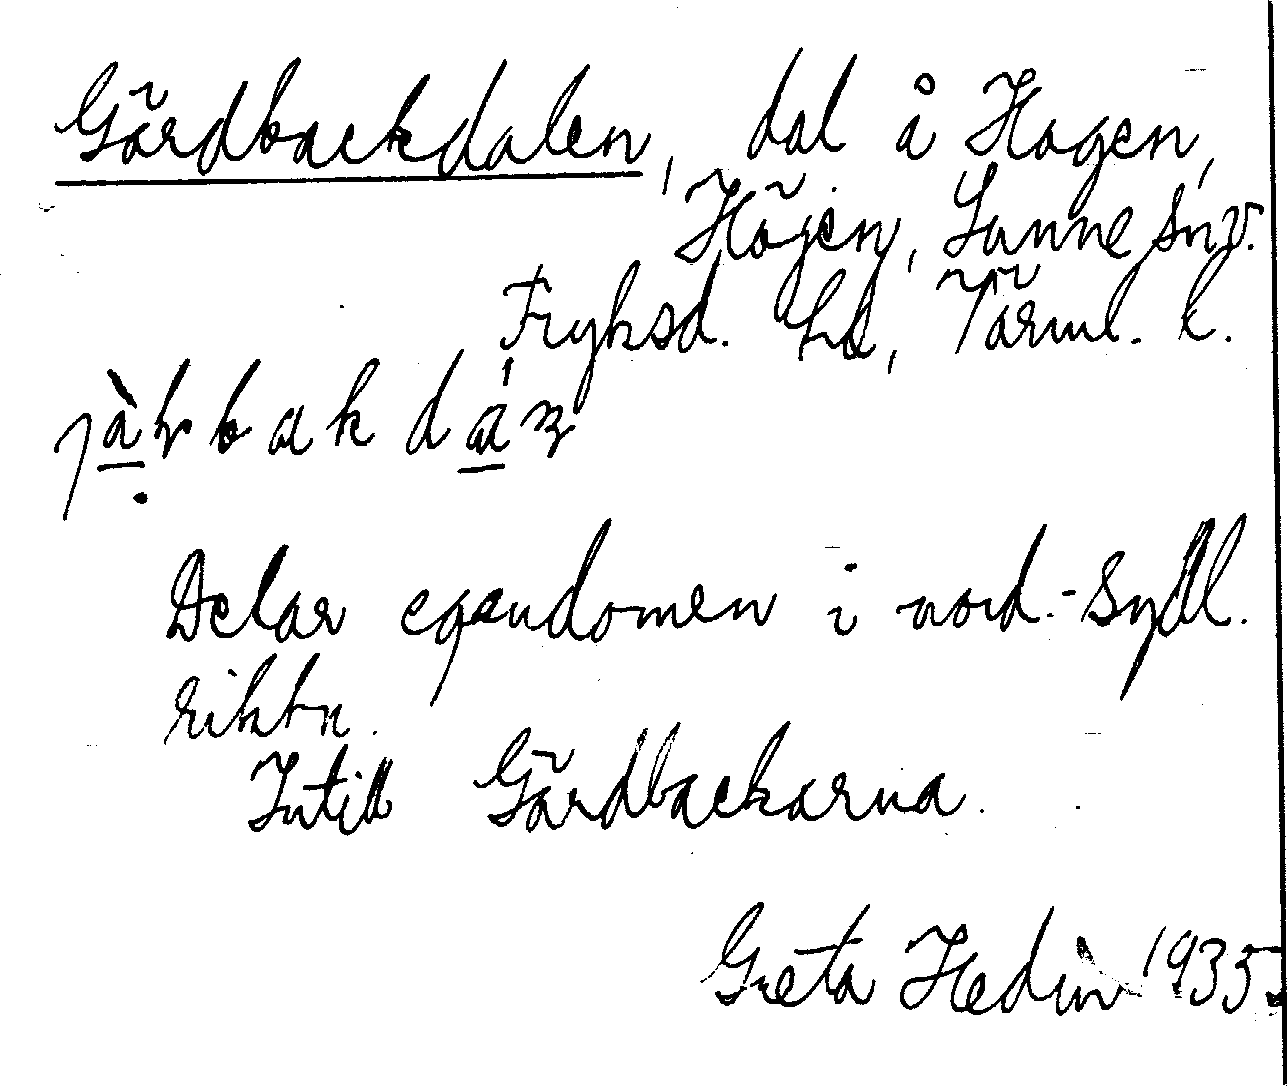 Gärdbackdalen, dal å Hagen,
Höjen, Sunne snv.
Fryksd. hd, Värml. l.
Delar egendomen i nord.-sydl.
riktn.
Intill Gärdbackarna.
Greta Hedin 1935.